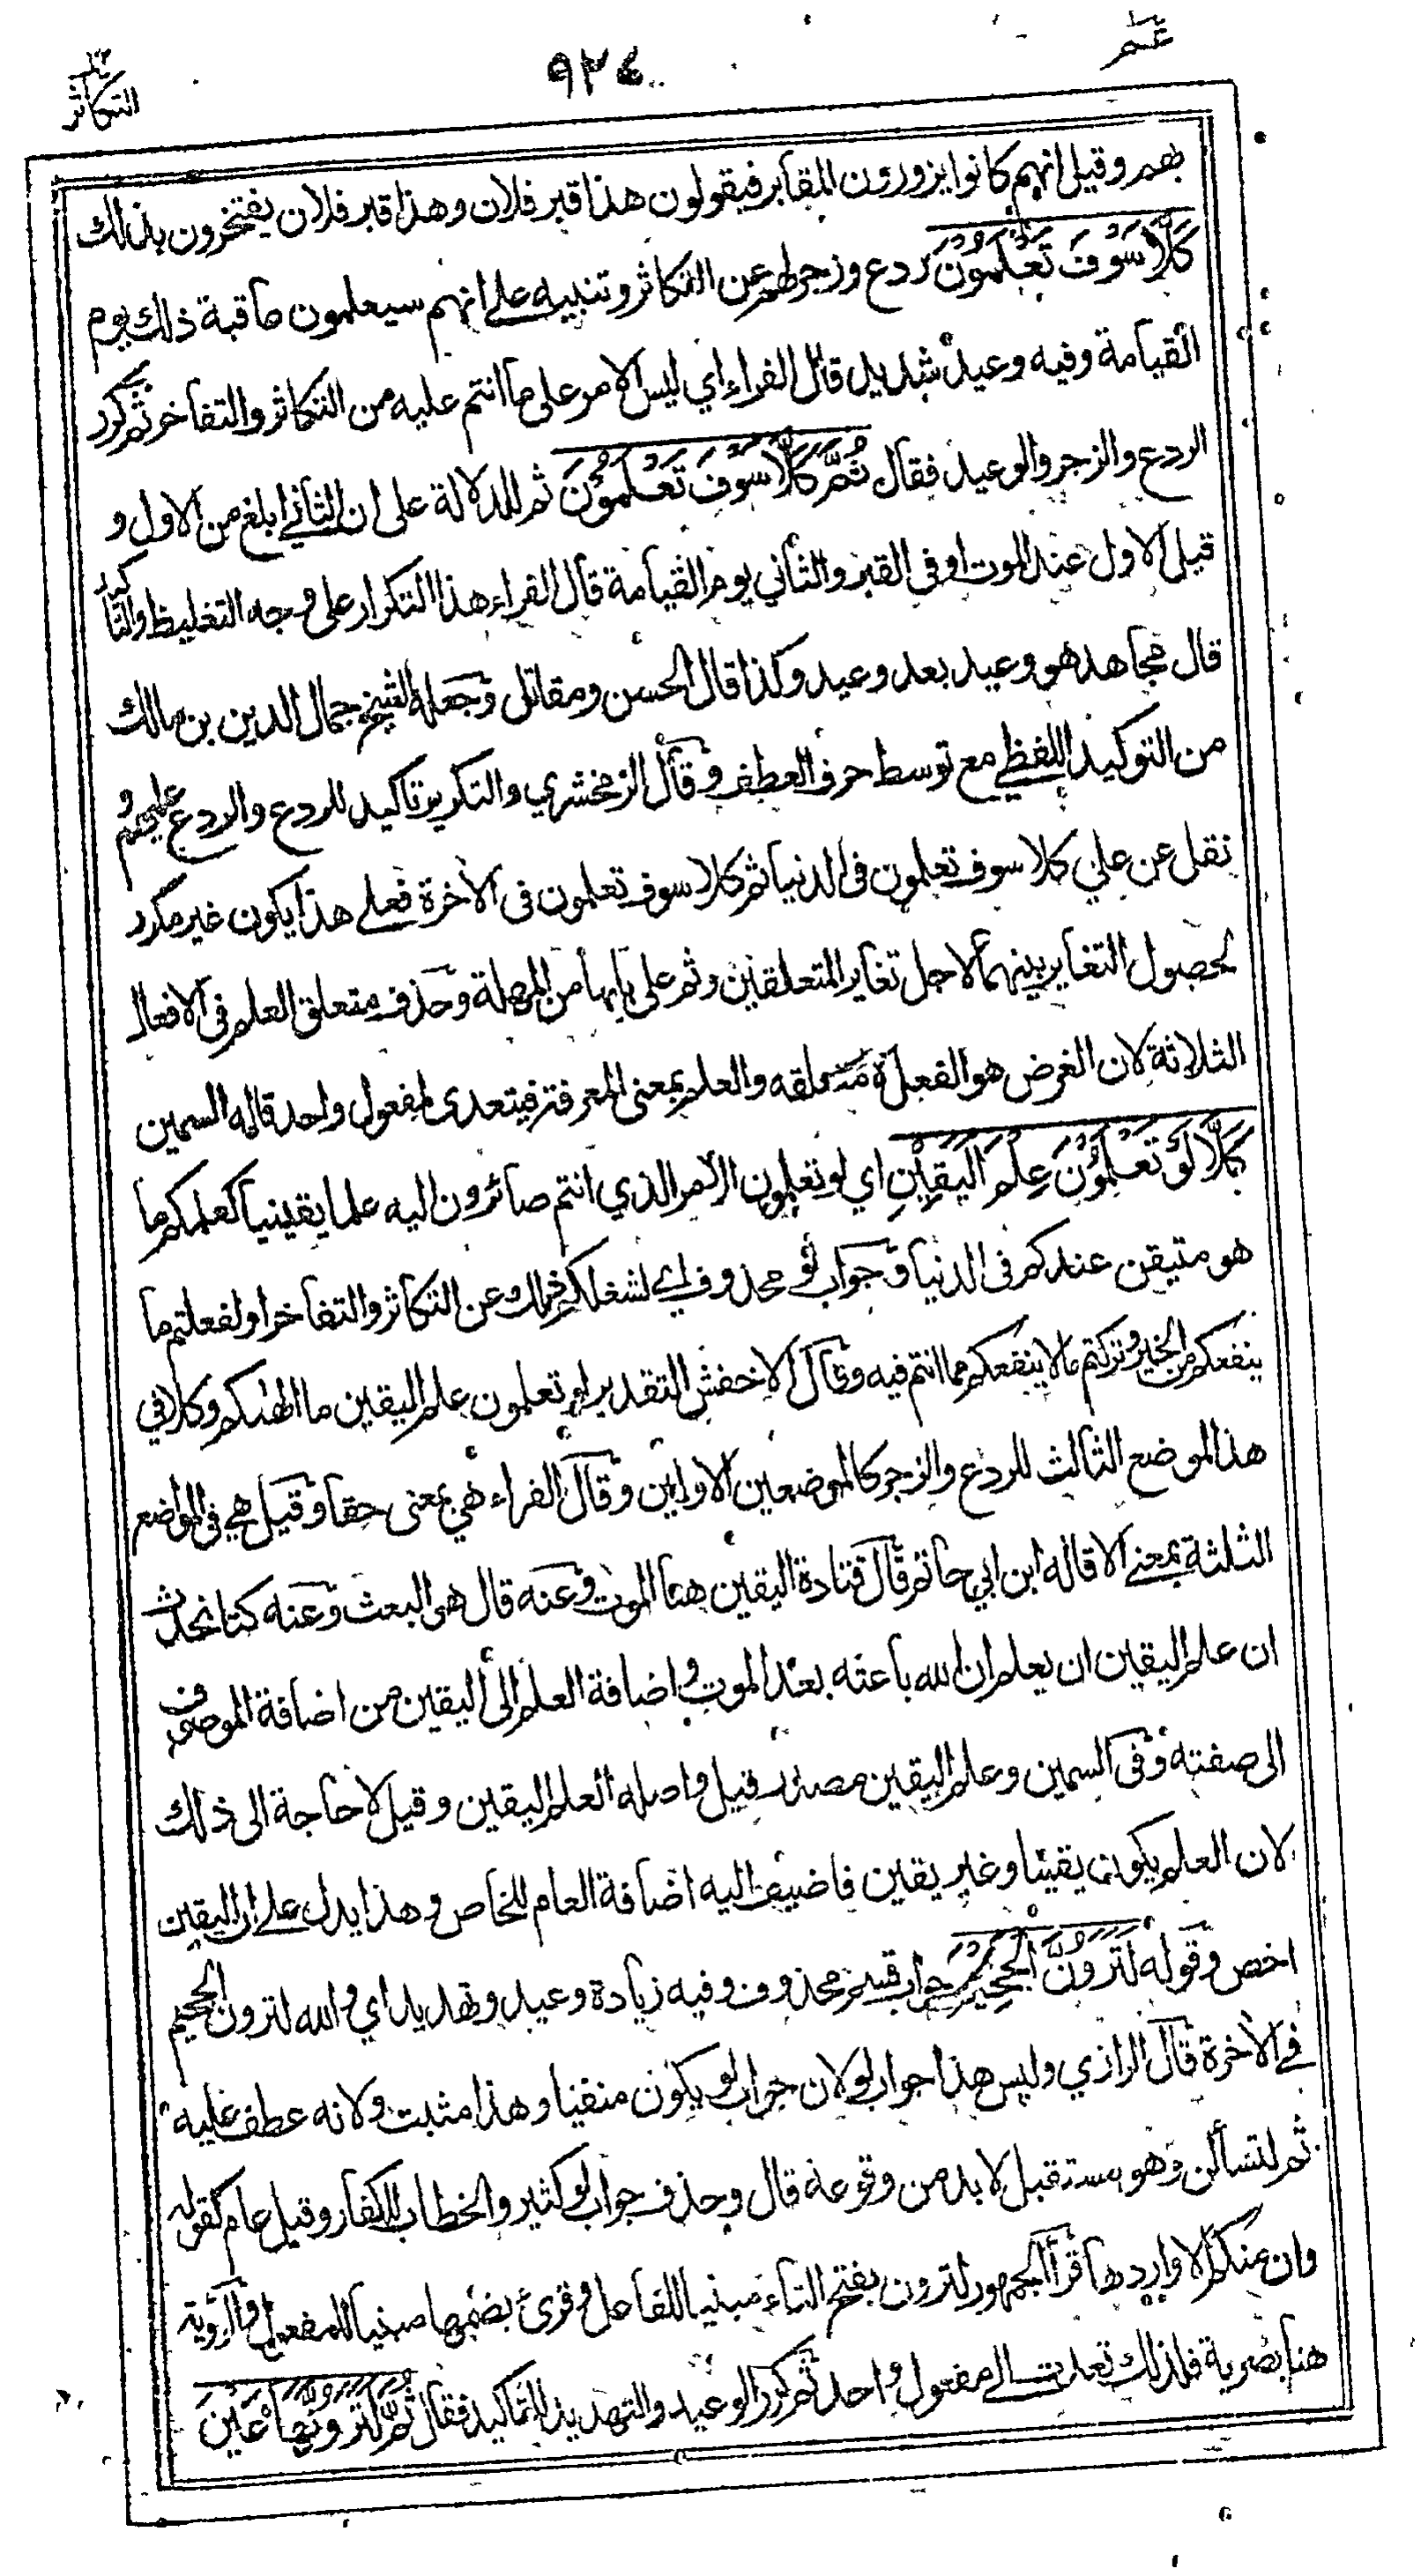 عم
٩٢٤
التكاثر
بهم وقيل انهم كانوا يزورون المقابر فيقولون هذا قبر فلان وهذا قبر فلان يفتخرون بذلك
كَلَّا سَوْفَ تَعْلَمُوْنَ ردع وزجر لهم عن التكاثر وتنبيه على انهم سيعلمون عاقبة ذلك يوم
القيامة وفيه وعيد شديد قال الفراء اي ليس الامر على ما انتم عليه من التكاثر والتفاخر ثم كرر
الردع والزجر والوعيد فقال ثُمَّ كَلَّا سَوْفَ تَعْلَمُوْنَ ثم للدلالة على ان الثاني ابلغ من الاول و
قيل الاول عند الموت او في القبر والثاني يوم القيامة قال الفراء هذا التكرار على وجه التغليظ والتاكيد
قال مجاهد هو وعيد بعد وعيد وكذا قال الحسن ومقاتل وجعله الشيخ جمال الدين بن مالك
من التوكيد اللفظي مع توسط حرف العطف وقال الزمخشري والتكرير تاكيد للردع والردع عليهم و
نقل عن علي كلا سوف تعلمون فى الدنيا ثم كلا سوف تعلمون فى الاخرة فعلى هذا يكون غير مكرر
لحصول التغاير بينهما لاجل تغاير المتعلقين وثم على بابها من المهلة وحذف متعلق العلم فى الافعال
الثلاثة لان الغرض هو الفعل لا متعلقه والعلم بمعنى المعرفة فيتعدى لمفعول واحد قاله السمين
كَلَّا لَوْ تَعْلَمُوْنَ عِلْمَ الْيَقِيْنِ اي لو تعلمون الامر الذي انتم صائرون اليه علما يقينيا كعلمكم ما
هو متيقن عندكم فى الدنيا وجواب لو محذوف اي لشغلكم ذلك عن التكاثر والتفاخر او لفعلتم ما
ينفعكم من الخير وتركتم ما لا ينفعكم مما انتم فيه وقال الاخفش التقدير لو تعلمون علم اليقين ما الهاكم وكلا في
هذا الموضع الثالث للردع والزجر كالموضعين الاولين وقال الفراء هي بمعنى حقا وقيل هي فى المواضع
الثلثة بمعنى الا قاله ابن ابي حاتم قال قتادة اليقين هنا الموت وعنه قال هى البعث وعنه كنا نحدث
ان علم اليقين ان يعلم ان الله باعثه بعد الموت واضافة العلم الى اليقين من اضافة الموصوف
الى صفته وفى السمين وعلم اليقين مصدر قيل واصله العلم اليقين وقيل لا حاجة الى ذلك
لان العلم يكون يقينا وغير يقين فاضيف اليه اضافة العام للخاص وهذا يدل على ان اليقين
اخص وقوله لَتَرَوُنَّ الْجَحِيْمَ جواب قسم محذوف وفيه زيادة وعيد وتهديد اي والله لترون الجحيم
في الاخرة قال الرازي وليس هذا جواب لو لان جواب لو يكون منفيا وهذا مثبت ولانه عطف عليه
ثم لتسألن وهو مستقبل لا بد من وقوعه قال وحذف جواب لو كثير والخطاب للكفار وقيل عام كقوله
وان منكم الا واردها قرأ الجمهور لترون بفتح التاء مبنيا للفاعل وقرئ بضمها مبنيا للمفعول والرؤية
هنا بصرية فلذلك تعدت الى مفعول واحد ثم كرر الوعيد والتهديد للتاكيد فقال ثُمَّ لَتَرَوُنَّهَا عَيْنَ